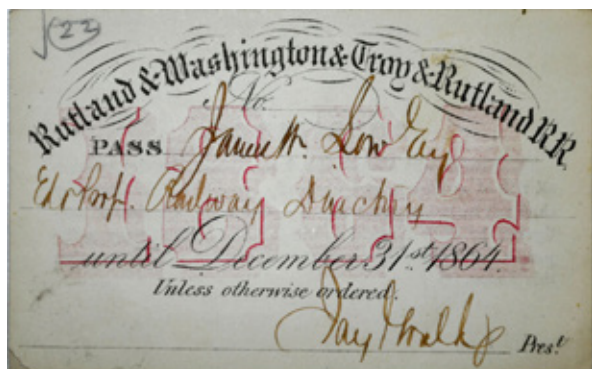 √(22)
Rutland & Washington & Troy & Rutland RR.
No.
PASS James W. Low Esq
Ed & Prop. Railway Directory
until December 31st 1864.
Unless otherwise ordered.
Jay Pres.t
1864